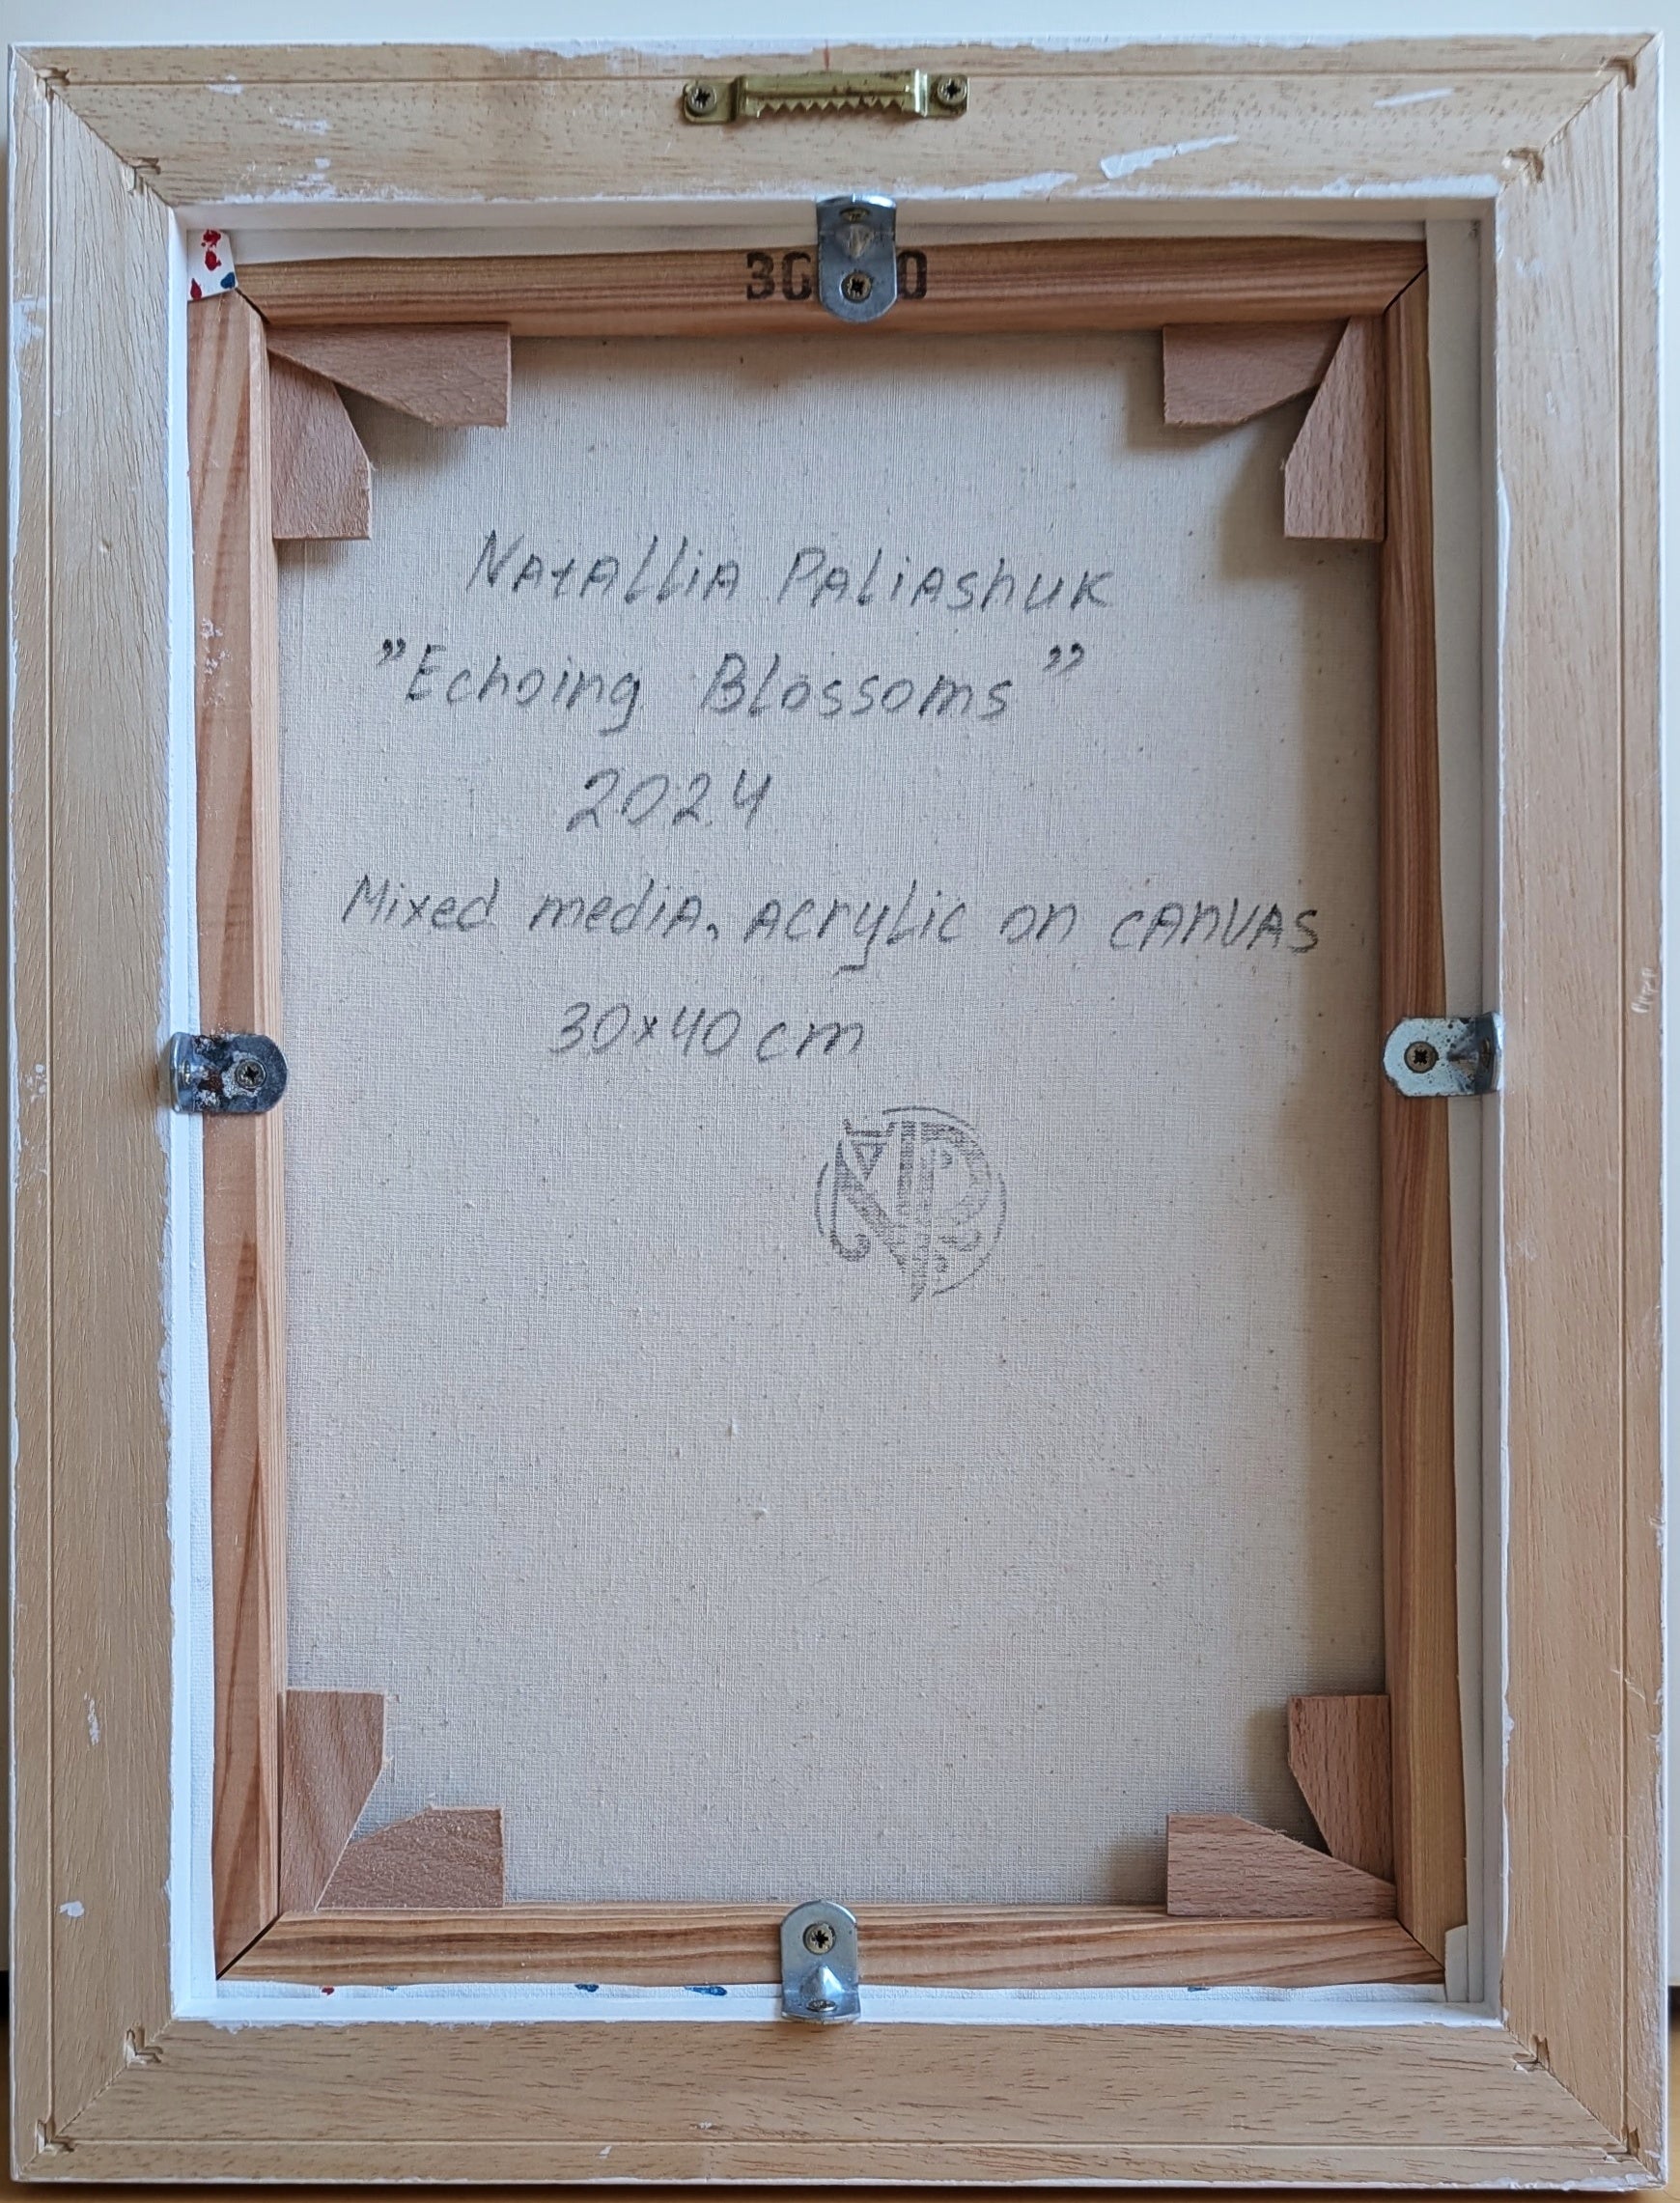 Natallia Paliashuk
”Echoing Blossoms”
2024
Mixed media, acrylic on canvas
30x40 cm
NP